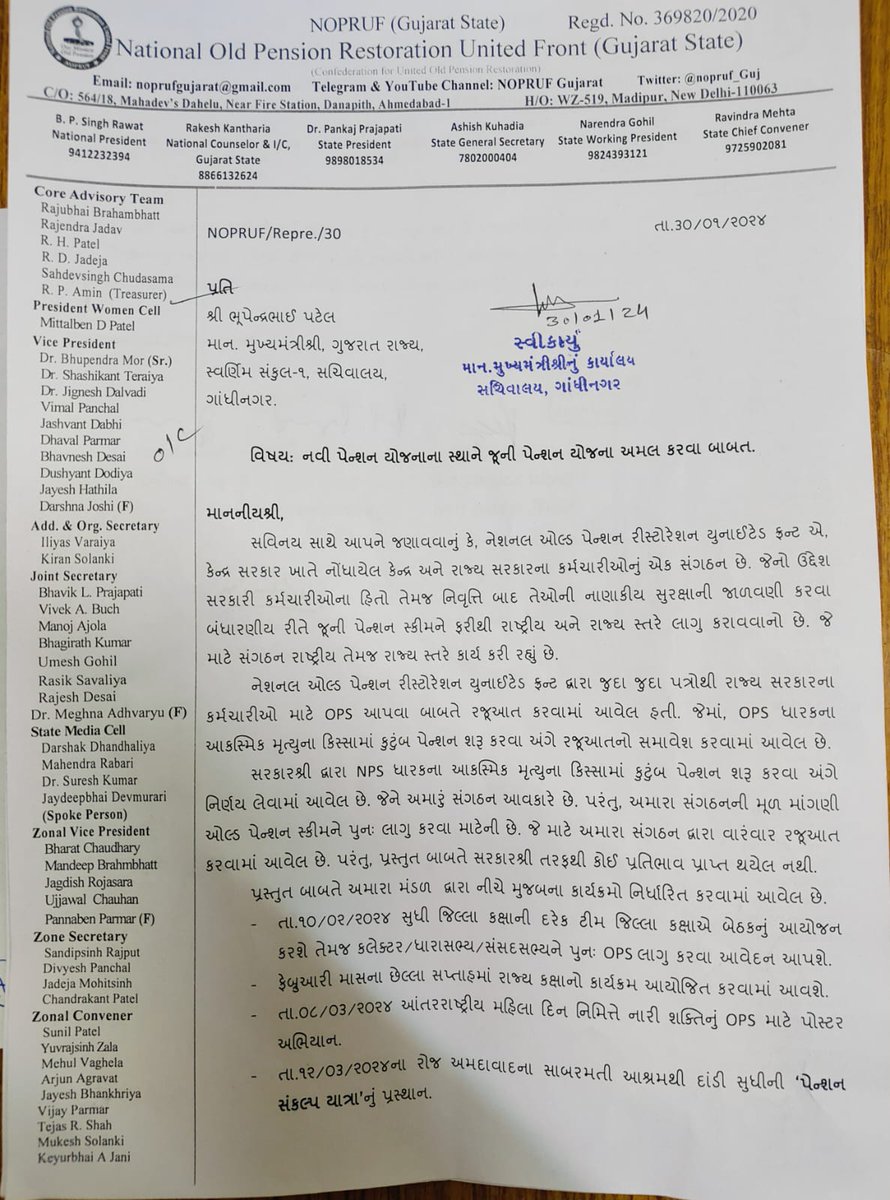 NOPRUF (Gujarat State)
Regd. No. 369820/2020
National Old Pension Restoration United Front (Gujarat State)
(Confederation for United Old Pension Restoration)
Email: noprufgujarat@gmail.com Telegram & YouTube Channel: NOPRUF Gujarat Twitter: @nopruf_Guj
C/O: 564/18, Mahadev's Dahelu, Near Fire Station, Danapith, Ahmedabad-1 H/O: WZ-519, Madipur, New Delhi-110063
B. P. Singh Rawat
National President
9412232394
Rakesh Kantharia
National Counselor & I/C,
Gujarat State
8866132624
Dr. Pankaj Prajapati
State President
9898018534
Ashish Kuhadia
State General Secretary
7802000404
Narendra Gohil
State Working President
9824393121
Ravindra Mehta
State Chief Convener
9725902081
Core Advisory Team
Rajubhai Brahambhatt
Rajendra Jadav
R. H. Patel
R. D. Jadeja
Sahdevsingh Chudasama
R. P. Amin (Treasurer)
President Women Cell
Mittalben D Patel
Vice President
Dr. Bhupendra Mor (Sr.)
Dr. Shashikant Teraiya
Dr. Jignesh Dalvadi
Vimal Panchal
Jashvant Dabhi
Dhaval Parmar
Bhavnesh Desai
Dushyant Dodiya
Jayesh Hathila
Darshna Joshi (F)
Add. & Org. Secretary
Iliyas Varaiya
Kiran Solanki
Joint Secretary
Bhavik L. Prajapati
Vivek A. Buch
Manoj Ajola
Bhagirath Kumar
Umesh Gohil
Rasik Savaliya
Rajesh Desai
Dr. Meghna Adhvaryu (F)
State Media Cell
Darshak Dhandhaliya
Mahendra Rabari
Dr. Suresh Kumar
Jaydeepbhai Devmurari
(Spoke Person)
Zonal Vice President
Bharat Chaudhary
Mandeep Brahmbhatt
Jagdish Rojasara
Ujjawal Chauhan
Pannaben Parmar (F)
Zone Secretary
Sandipsinh Rajput
Divyesh Panchal
Jadeja Mohitsinh
Chandrakant Patel
Zonal Convener
Sunil Patel
Yuvrajsinh Zala
Mehul Vaghela
Arjun Agravat
Jayesh Bhankhriya
Vijay Parmar
Tejas R. Shah
Mukesh Solanki
Keyurbhai A Jani
NOPRUF/Repre./30
તા.30/૦૧/૨૦૨૪
પ્રતિ
શ્રી ભૂપેન્દ્રભાઈ પટેલ
માન. મુખ્યમંત્રીશ્રી, ગુજરાત રાજ્ય,
સ્વર્ણિમ સંકુલ-૧, સચિવાલય,
ગાંધીનગર.
30/01/24
સ્વીકાર્યું
માન.મુખ્યમંત્રીશ્રીનું કાર્યાલય
સચિવાલય, ગાંધીનગર
o/c
વિષય: નવી પેન્શન યોજનાના સ્થાને જૂની પેન્શન યોજના અમલ કરવા બાબત.
માનનીયશ્રી,
સવિનય સાથે આપને જણાવવાનું કે, નેશનલ ઓલ્ડ પેન્શન રીસ્ટોરેશન યુનાઈટેડ ફ્રન્ટ એ,
કેન્દ્ર સરકાર ખાતે નોંધાયેલ કેન્દ્ર અને રાજ્ય સરકારના કર્મચારીઓનું એક સંગઠન છે. જેનો ઉદ્દેશ
સરકારી કર્મચારીઓના હિતો તેમજ નિવૃત્તિ બાદ તેઓની નાણાકીય સુરક્ષાની જાળવણી કરવા
બંધારણીય રીતે જૂની પેન્શન સ્કીમને ફરીથી રાષ્ટ્રીય અને રાજ્ય સ્તરે લાગુ કરાવવાનો છે. જે
માટે સંગઠન રાષ્ટ્રીય તેમજ રાજ્ય સ્તરે કાર્ય કરી રહ્યું છે.
નેશનલ ઓલ્ડ પેન્શન રીસ્ટોરેશન યુનાઈટેડ ફ્રન્ટ દ્વારા જુદા જુદા પત્રોથી રાજ્ય સરકારના
કર્મચારીઓ માટે OPS આપવા બાબતે રજૂઆત કરવામાં આવેલ હતી. જેમાં, OPS ધારકના
આકસ્મિક મૃત્યુના કિસ્સામાં કુટુંબ પેન્શન શરૂ કરવા અંગે રજૂઆતનો સમાવેશ કરવામાં આવેલ છે.
સરકારશ્રી દ્વારા NPS ધારકના આકસ્મિક મૃત્યુના કિસ્સામાં કુટુંબ પેન્શન શરૂ કરવા અંગે
નિર્ણય લેવામાં આવેલ છે. જેને અમારું સંગઠન આવકારે છે. પરંતુ, અમારા સંગઠનની મૂળ માંગણી
ઓલ્ડ પેન્શન સ્કીમને પુનઃ લાગુ કરવા માટેની છે. જે માટે અમારા સંગઠન દ્વારા વારંવાર રજૂઆત
કરવામાં આવેલ છે. પરંતુ, પ્રસ્તુત બાબતે સરકારશ્રી તરફથી કોઈ પ્રતિભાવ પ્રાપ્ત થયેલ નથી.
પ્રસ્તુત બાબતે અમારા મંડળ દ્વારા નીચે મુજબના કાર્યક્રમો નિર્ધારિત કરવામાં આવેલ છે.
- તા.૧૦/૦૨/૨૦૨૪ સુધી જિલ્લા કક્ષાની દરેક ટીમ જિલ્લા કક્ષાએ બેઠકનું આયોજન
કરશે તેમજ કલેક્ટર/ધારાસભ્ય/સંસદસભ્યને પુનઃ OPS લાગુ કરવા આવેદન આપશે.
- ફેબ્રુઆરી માસના છેલ્લા સપ્તાહમાં રાજ્ય કક્ષાનો કાર્યક્રમ આયોજિત કરવામાં આવશે.
- તા.૦૮/૦૩/૨૦૨૪ આંતરરાષ્ટ્રીય મહિલા દિન નિમિત્તે નારી શક્તિનું OPS માટે પોસ્ટર
અભિયાન.
- તા.૧૨/૦૩/૨૦૨૪ના રોજ અમદાવાદના સાબરમતી આશ્રમથી દાંડી સુધીની 'પેન્શન
સંકલ્પ યાત્રા'નું પ્રસ્થાન.